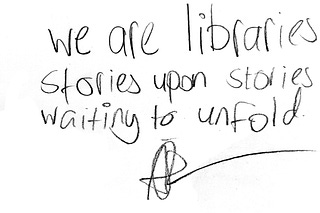 we are libraries
stories upon stories
waiting to unfold.